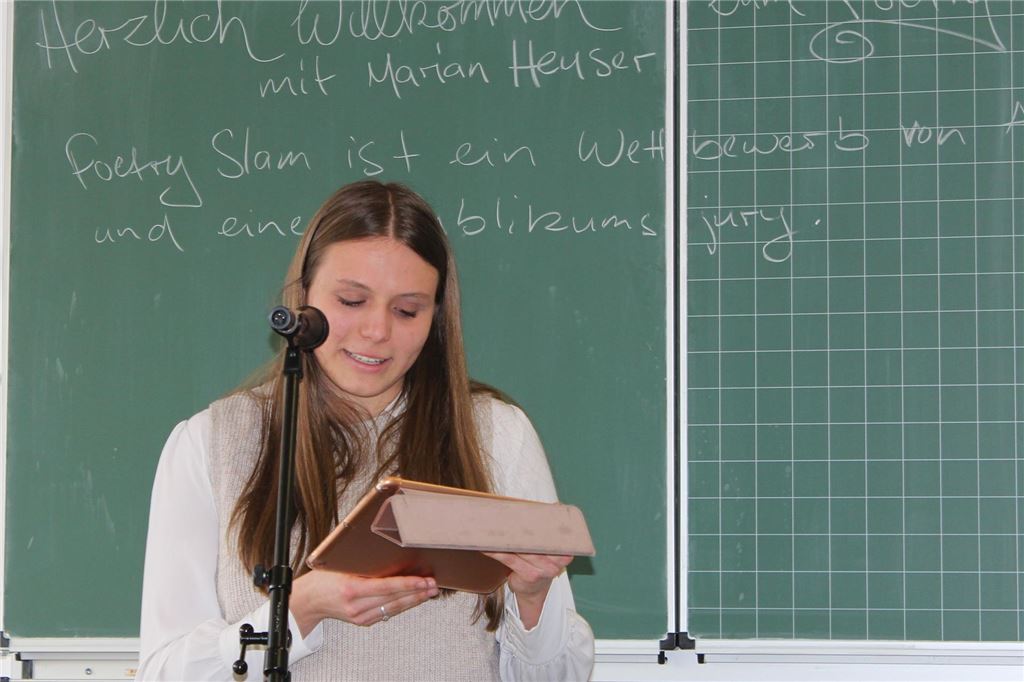 Herzlich Willkommen zum Poetry
mit Marian Heuser
Poetry Slam ist ein Wettbewerb von
und eine blikums jury.